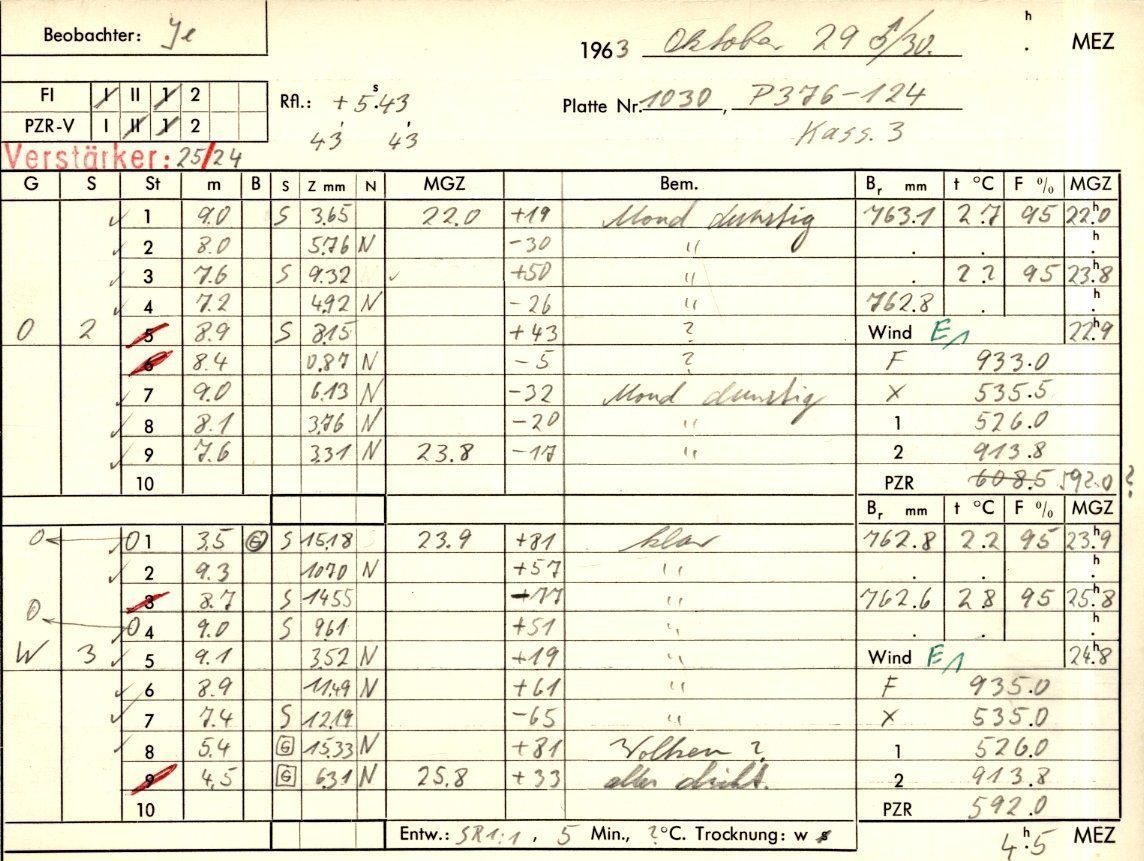 Beobachter: Je
1963 Oktober 29 /30. h . MEZ
FI I II 1 2
PZR-V I II 1 2
Rfl.: + 5s.43
43 43
Platte Nr. 1030, P376-124
Kass. 3
Verstärker: 25/24
G S St m B S Z mm N MGZ Bem. Br mm t °C F % MGZ
1 9.0 S 3.65 22.0 +19 Mond dunstig 763.1 2.7 95 22h.0
2 8.0 5.76 N -30 " . . h.
3 7.6 S 9.32 +50 " . 2.2 95 23h.8
4 7.2 4.92 N -26 " 762.8 . h.
0 2 5 8.9 S 8.15 +43 ? Wind E1 22h.9
6 8.4 0.87 N -5 ? F 933.0
7 9.0 6.13 N -32 Mond dunstig X 535.5
8 8.1 3.76 N -20 " 1 526.0
9 7.6 3.31 N 23.8 -17 " 2 913.8
10 PZR 608.5 592.0 ?
Br mm t °C F % MGZ
0 0 1 3.5 G S 15.18 23.9 +81 klar 762.8 2.2 95 23h.9
2 9.3 10.70 N +57 " . . h.
3 8.7 S 14.55 -77 " 762.6 2.8 95 25h.8
0 0 4 9.0 S 9.61 +51 " . . h.
W 3 5 9.1 3.52 N +19 " Wind E1 24h.8
6 8.9 11.49 N +61 " F 935.0
7 7.4 S 12.19 -65 " X 535.0
8 5.4 G 15.33 N +81 Wolken ? 1 526.0
9 4.5 G 6.31 N 25.8 +33 alles dicht. 2 913.8
10 PZR 592.0
Entw.: SR1:1, 5 Min., ?°C. Trocknung: w s 4h.5 MEZ